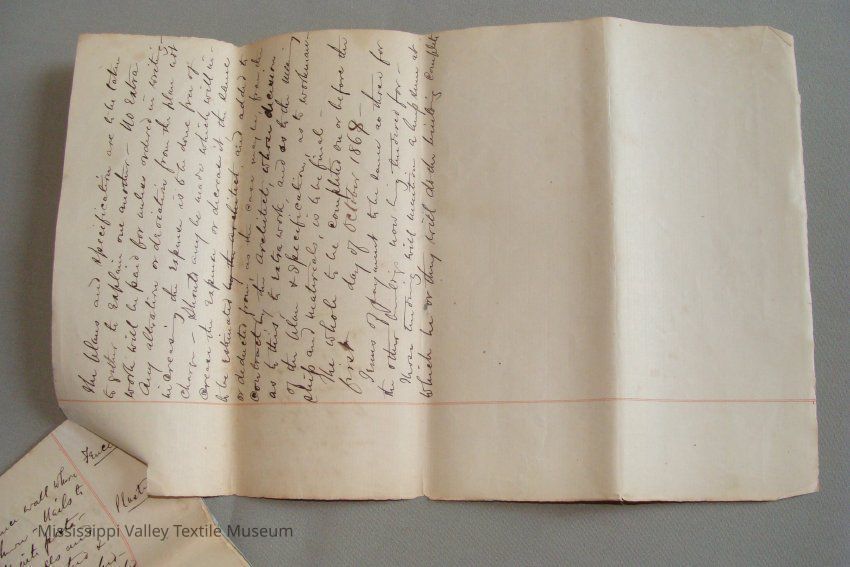 The plans and specification are to be taken
together to explain one another - No Extra
work will be paid for unless ordered in writing
Any alteration or deviation from the plan not
increasing the expense is to be done free of
charge - Should any be made which will in-
crease the expense or decrease it the same
to be estimated by the architect and added to
or deducted from, as the case may be, from the
contract by the Architect, whose decision
as to this, to extra work, and as to the meaning
of the plan & specification, as to workman-
ship and materials, is to be final -
The whole to be completed on or before the
first day of October 1868 -
Terms of payment to be same as those for
the other buildings now being tendered for -
Those tendering will mention a lump sum at
which he or they will do the building complete
Fence
wall where
Nails to
Plaster
Mississippi Valley Textile Museum